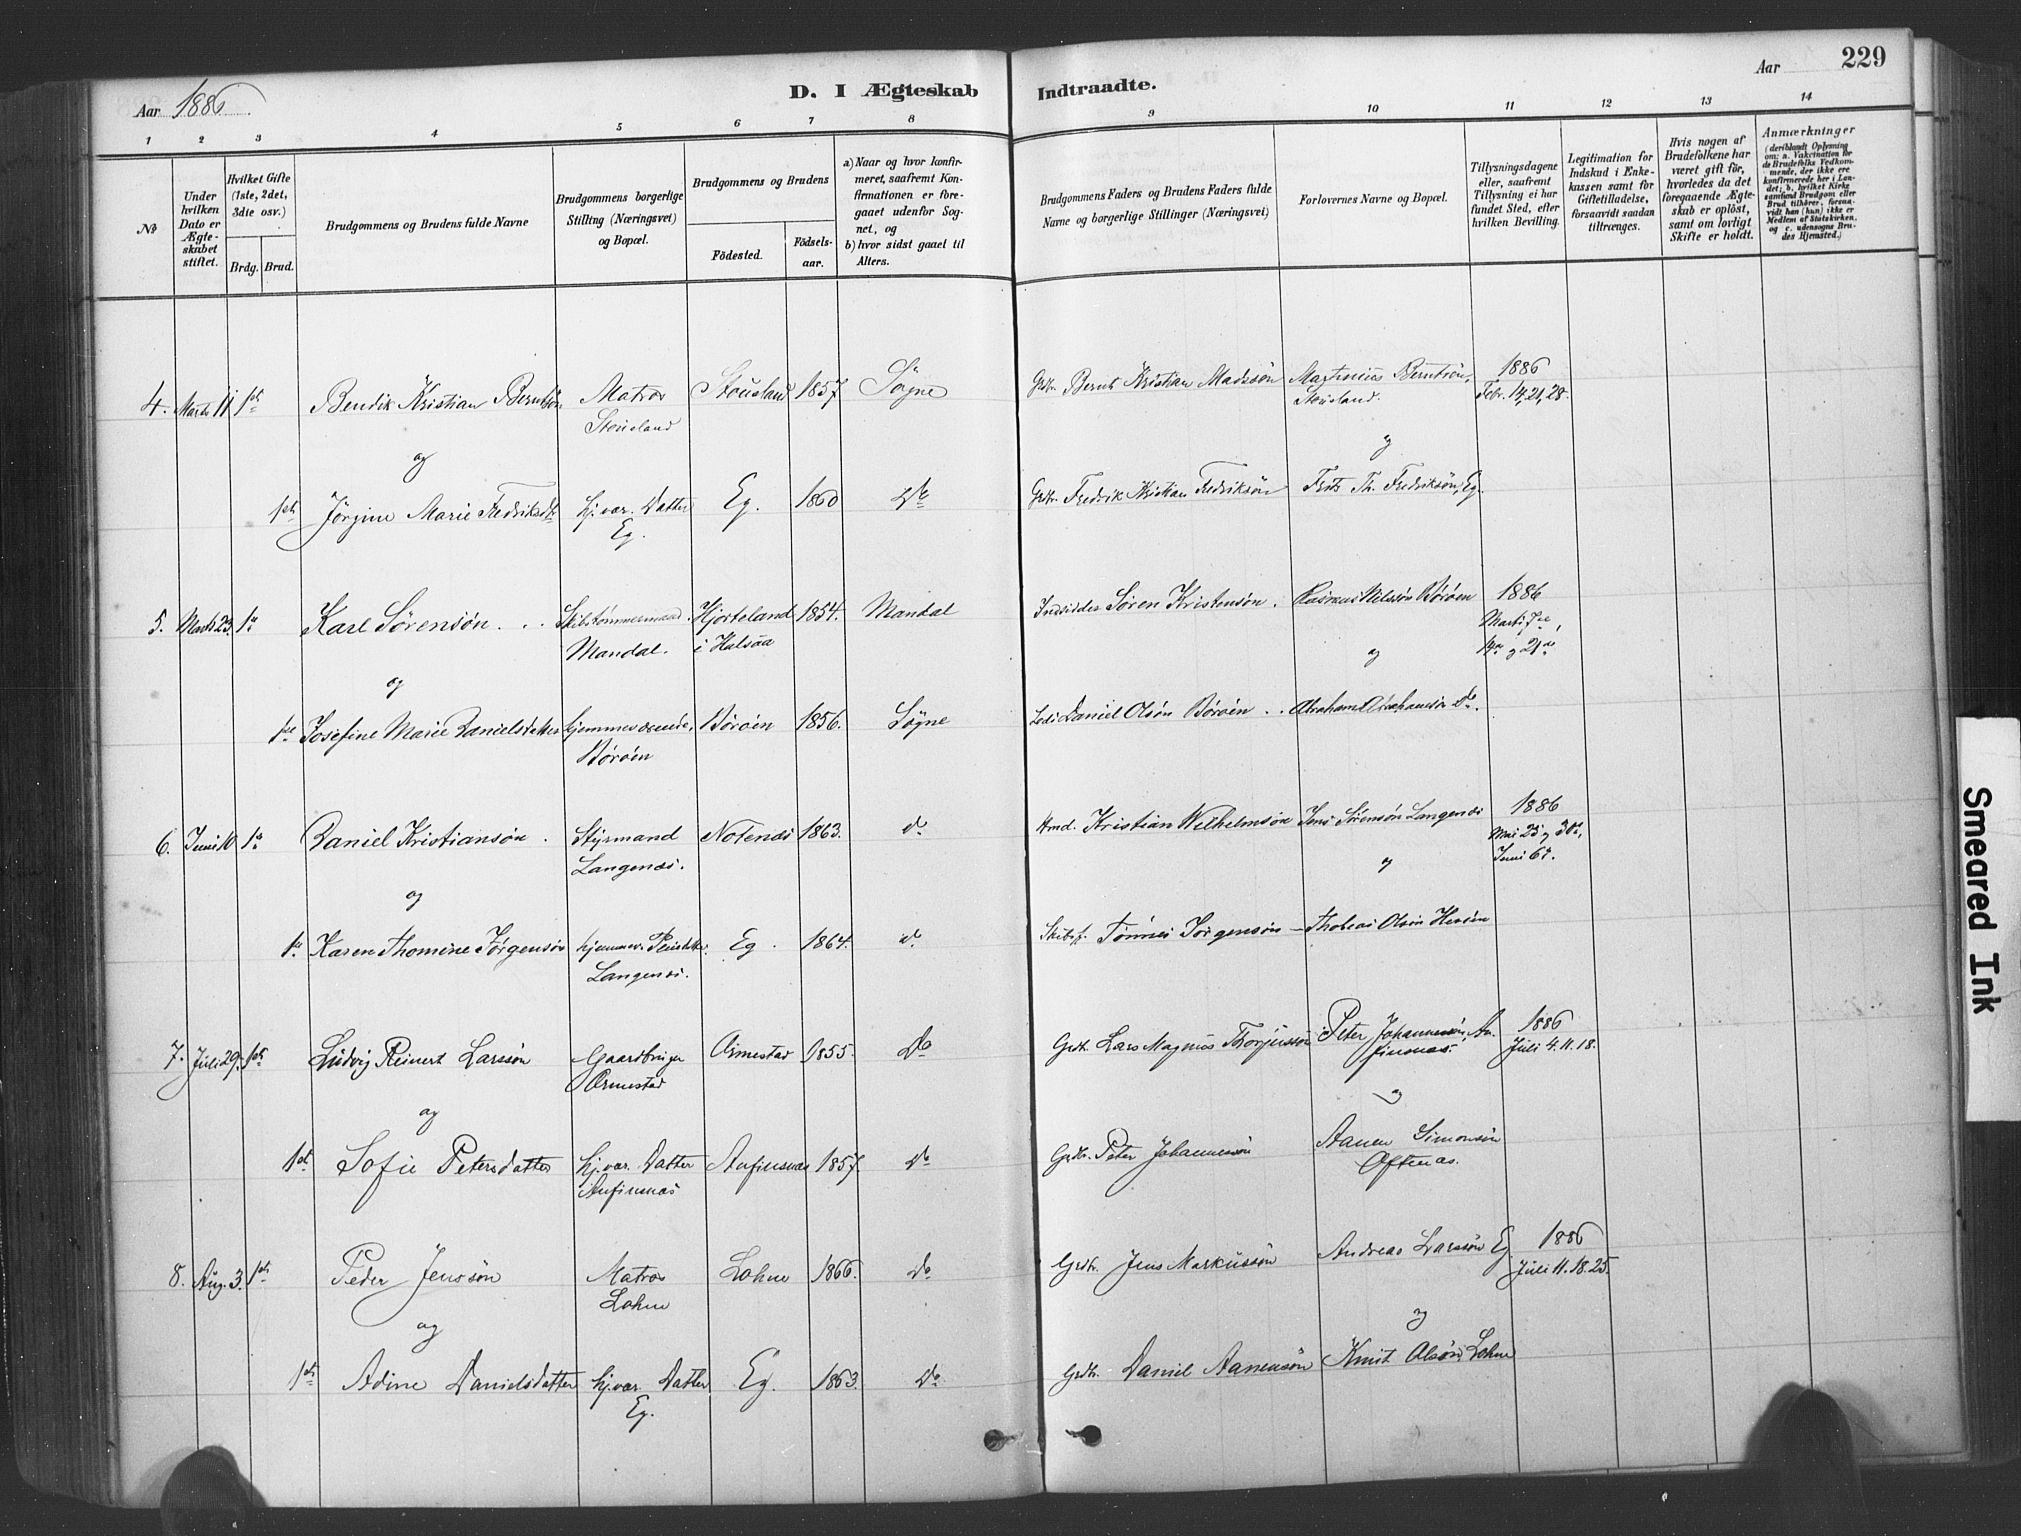 Aar 1886
D. I Ægteskab Indtraadte.
Aar
229
1 2 3 4 5 6 7 8 9 10 11 12 13 14
No
Under hvilken Dato er Ægteskabet stiftet.
Hvilket Gifte (1ste, 2det, 3die osv.)
Brdg. Brud.
Brudgommens og Brudens fulde Navne
Brudgommens borgerlige Stilling (Næringsvei) og Bopæl.
Brudgommens og Brudens
Fødested.
Fødselsaar.
a) Naar og hvor konfirmeret, saafremt Konfirmationen er foregaaet udenfor Sognet, og
b) hvor sidst gaaet til Alters.
Brudgommens Faders og Brudens Faders fulde Navne og borgerlige Stillinger (Næringsvei)
Forlovernes Navne og Bopæl.
Tillysningsdagene eller, saafremt Tillysning ei har fundet Sted, efter hvilken Bevilling.
Legitimation for Indskud i Enkekassen samt for Giftetilladelse, forsaavidt saadan tiltrænges.
Hvis nogen af Brudefolkene har været gift før, hvorledes da det foregaaende Ægteskab er opløst, samt om lovligt Skifte er holdt.
Anmærkninger (deriblandt Oplysning om: a. Vakcination for de Brudefolks Vedkommende, der ikke ere konfirmerede her i Landet; b. hvilket Kirkesamfund Brudgom eller Brud tilhører, forsaavidt han (hun) ikke er Medlem af Statskirken, og c. udensogns Brudes Hjemsted.)
4. Marts 11 1ste Bendik Kristian Berntsøn Matros Stousland Stousland 1857. Søgne Grdbr. Bernt Kristian Madssøn Martinius Berntsøn, Stousland. 1886 Febr. 14, 21, 28.
og og
1ste Jörgine Marie Fredriksdtr hj.var. Datter Eg. Eg. 1860 Do Grdbr. Fredrik Kristian Fredriksøn Frits Th. Fredriksøn, Eg.
5. Marts 23 1ste Karl Sørensøn Skibstømmermand Mandal. Hjorteland i Halsaa 1854. Mandal Indsidder Søren Kristensøn. Rasmus Nilssøn Børøen 1886 Marts 7de, 14de og 21de
og og
1ste Josefine Marie Danielsdatter hjemmeværende, Børøen Børøen 1856. Søgne Lods Daniel Olsøn Børøen Abraham Abrahamsøn do.
6. Juni 10 1ste Daniel Kristiansøn Styrmand Langenæs. Notenæs 1863. do Kristian Wilhelmsøn Jens Sørensøn Langenæs 1886 Mai 23 og 30te, Juni 6te.
og og
1ste Karen Thomine Jørgensøn Langenæs. Eg. 1864. do Skibsf. Tønnes Jørgensøn Thobias Olsøn
7. Juli 29. 1ste Ludvig Reinert Larssøn Gaardbruger Ormestad Ormestad 1855. Do Grdb. Lars Magnus Thorjussøn Peter Johannessøn, Anfinsnæs. 1886 Juli 4. 11. 18.
og og
1ste Sofie Petersdatter hj.var. Datter Anfinsnæs Anfinsnæs 1857. Do Grdb. Peter Johannessøn Aanen Simonsøn Oftenæs.
8. Aug. 3. 1ste Peder Jenssøn Matros Lohne Lohne 1866. Do Grdb. Jens Markussøn Andreas Larssøn Eg 1886 Juli 11. 18. 25.
og og
1ste Adine Danielsdatter hj.var. Datter Eg. Eg. 1863. Do Grdb. Daniel Aanensøn Knut Olsøn, Lohne
Smeared Ink